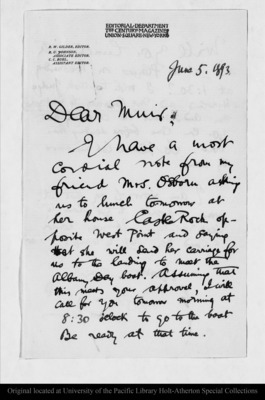 EDITORIAL DEPARTMENT
THE CENTURY MAGAZINE
UNION SQUARE NEW YORK
R. W. GILDER, EDITOR.
R. U. JOHNSON,
ASSOCIATE EDITOR.
C. C. BUEL,
ASSISTANT EDITOR.
June 5. 1893
Dear Muir,
I have a most
cordial note from my
friend Mrs. Osborn asking
us to lunch tomorrow at
her house Castle Rock op-
posite West Point and saying
that she will send her carriage for
us to the landing to meet the
Albany Day boat. Assuming that
this meets your approval, I will
call for you tomorrow morning at
8:30 o'clock to go to the boat
Be ready at that time.
Original located at University of the Pacific Library Holt-Atherton Special Collections